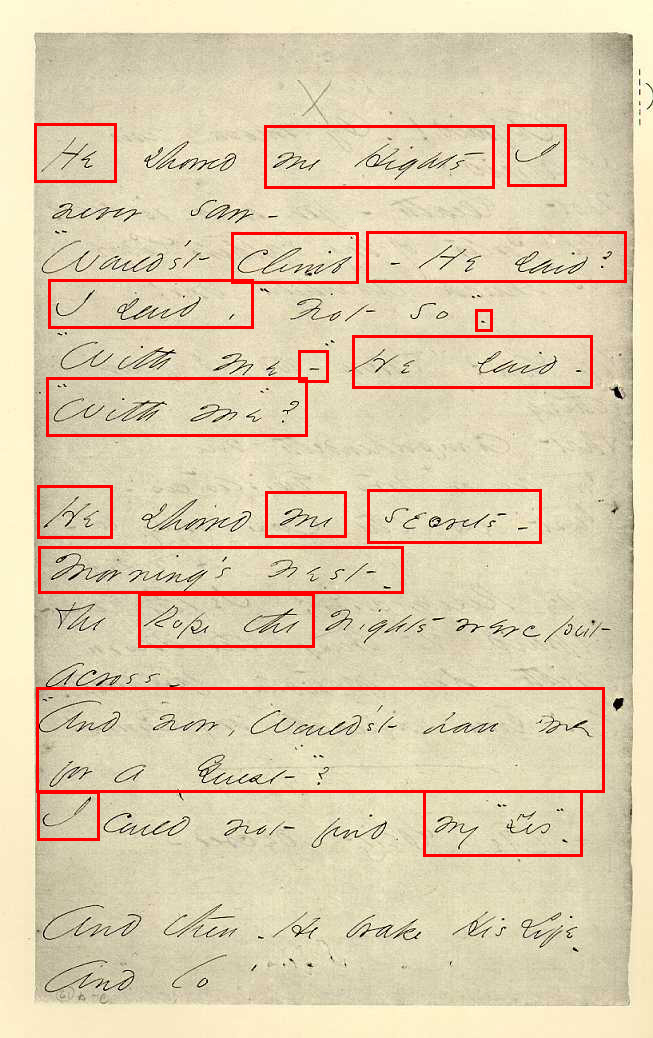 X
He showed me Hights I
never saw -
"Would'st Climb" - He said?
I said, "Not so".
"With me -" He said -
"With me"?
He showed me secrets -
Morning's nest -
The Rope the Nights were put
across -
"And now, Would'st have me
for a Guest"?
I could not find my "Yes".
And then - He brake His Life -
And lo